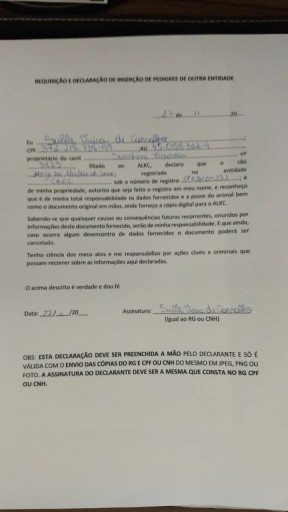 REQUISIÇÃO E DECLARAÇÃO DE INSERÇÃO DE PEDIGREE DE OUTRA ENTIDADE
de 11 20
Eu de Carvalho
CPF RG
proprietário do canil nº
filiado ao ALKC, declara que o cão
registrado na entidade
sob o número de registro
de minha propriedade, autorizo que seja feito o registro em meu nome, e reconheço
que é de minha total responsabilidade os dados fornecidos e a posse do animal bem
como o documento original em mãos, onde forneço a cópia digital para o ALKC.
Sabendo-se que quaisquer causas ou consequências futuras recorrentes, oriundos por
informações deste documento fornecido, serão de minha responsabilidade. E que ainda,
caso ocorra algum desencontro de dados fornecidos o documento poderá ser
cancelado.
Tenho ciência dos meus atos e me responsabilizo por ações cíveis e criminais que
possam recorrer sobre as informações aqui declaradas.
O acima descrito é verdade e dou fé
Data: /20 Assinatura: de Carvalho
(Igual ao RG ou CNH)
OBS: ESTA DECLARAÇÃO DEVE SER PREENCHIDA A MÃO PELO DECLARANTE E SÓ É
VÁLIDA COM O ENVIO DAS CÓPIAS DO RG E CPF OU CNH DO MESMO EM JPEG, PNG OU
FOTO. A ASSINATURA DO DECLARANTE DEVE SER A MESMA QUE CONSTA NO RG CPF
OU CNH.